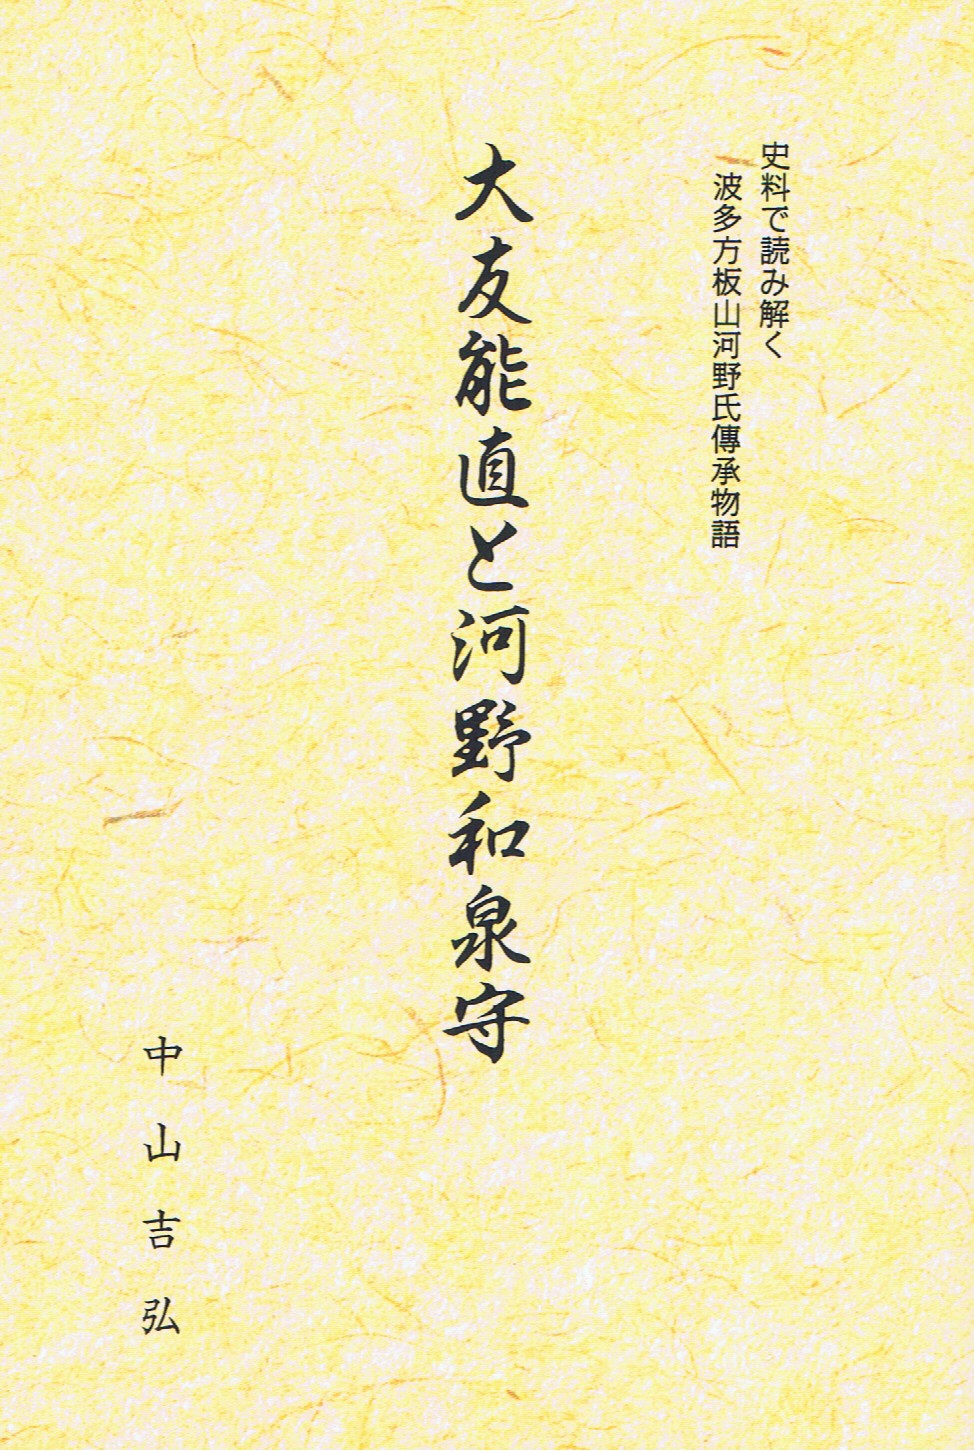 史料で読み解く
波多方板山河野氏傳承物語
大友能直と河野和泉守
中山吉弘